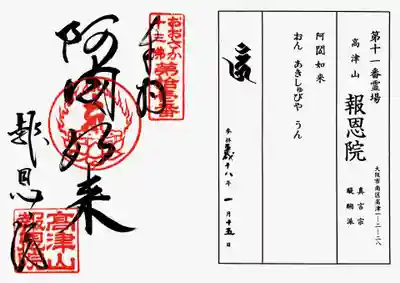 第十一番霊場
高津山 報恩院
真言宗
醍醐派
大阪市南区高津一―二―二八
阿閦如来
おん あきしゅびや うん
十八年 一月十五日
おおさか
十三佛
奉拝
阿閦如来
報恩院
高津山
報恩院